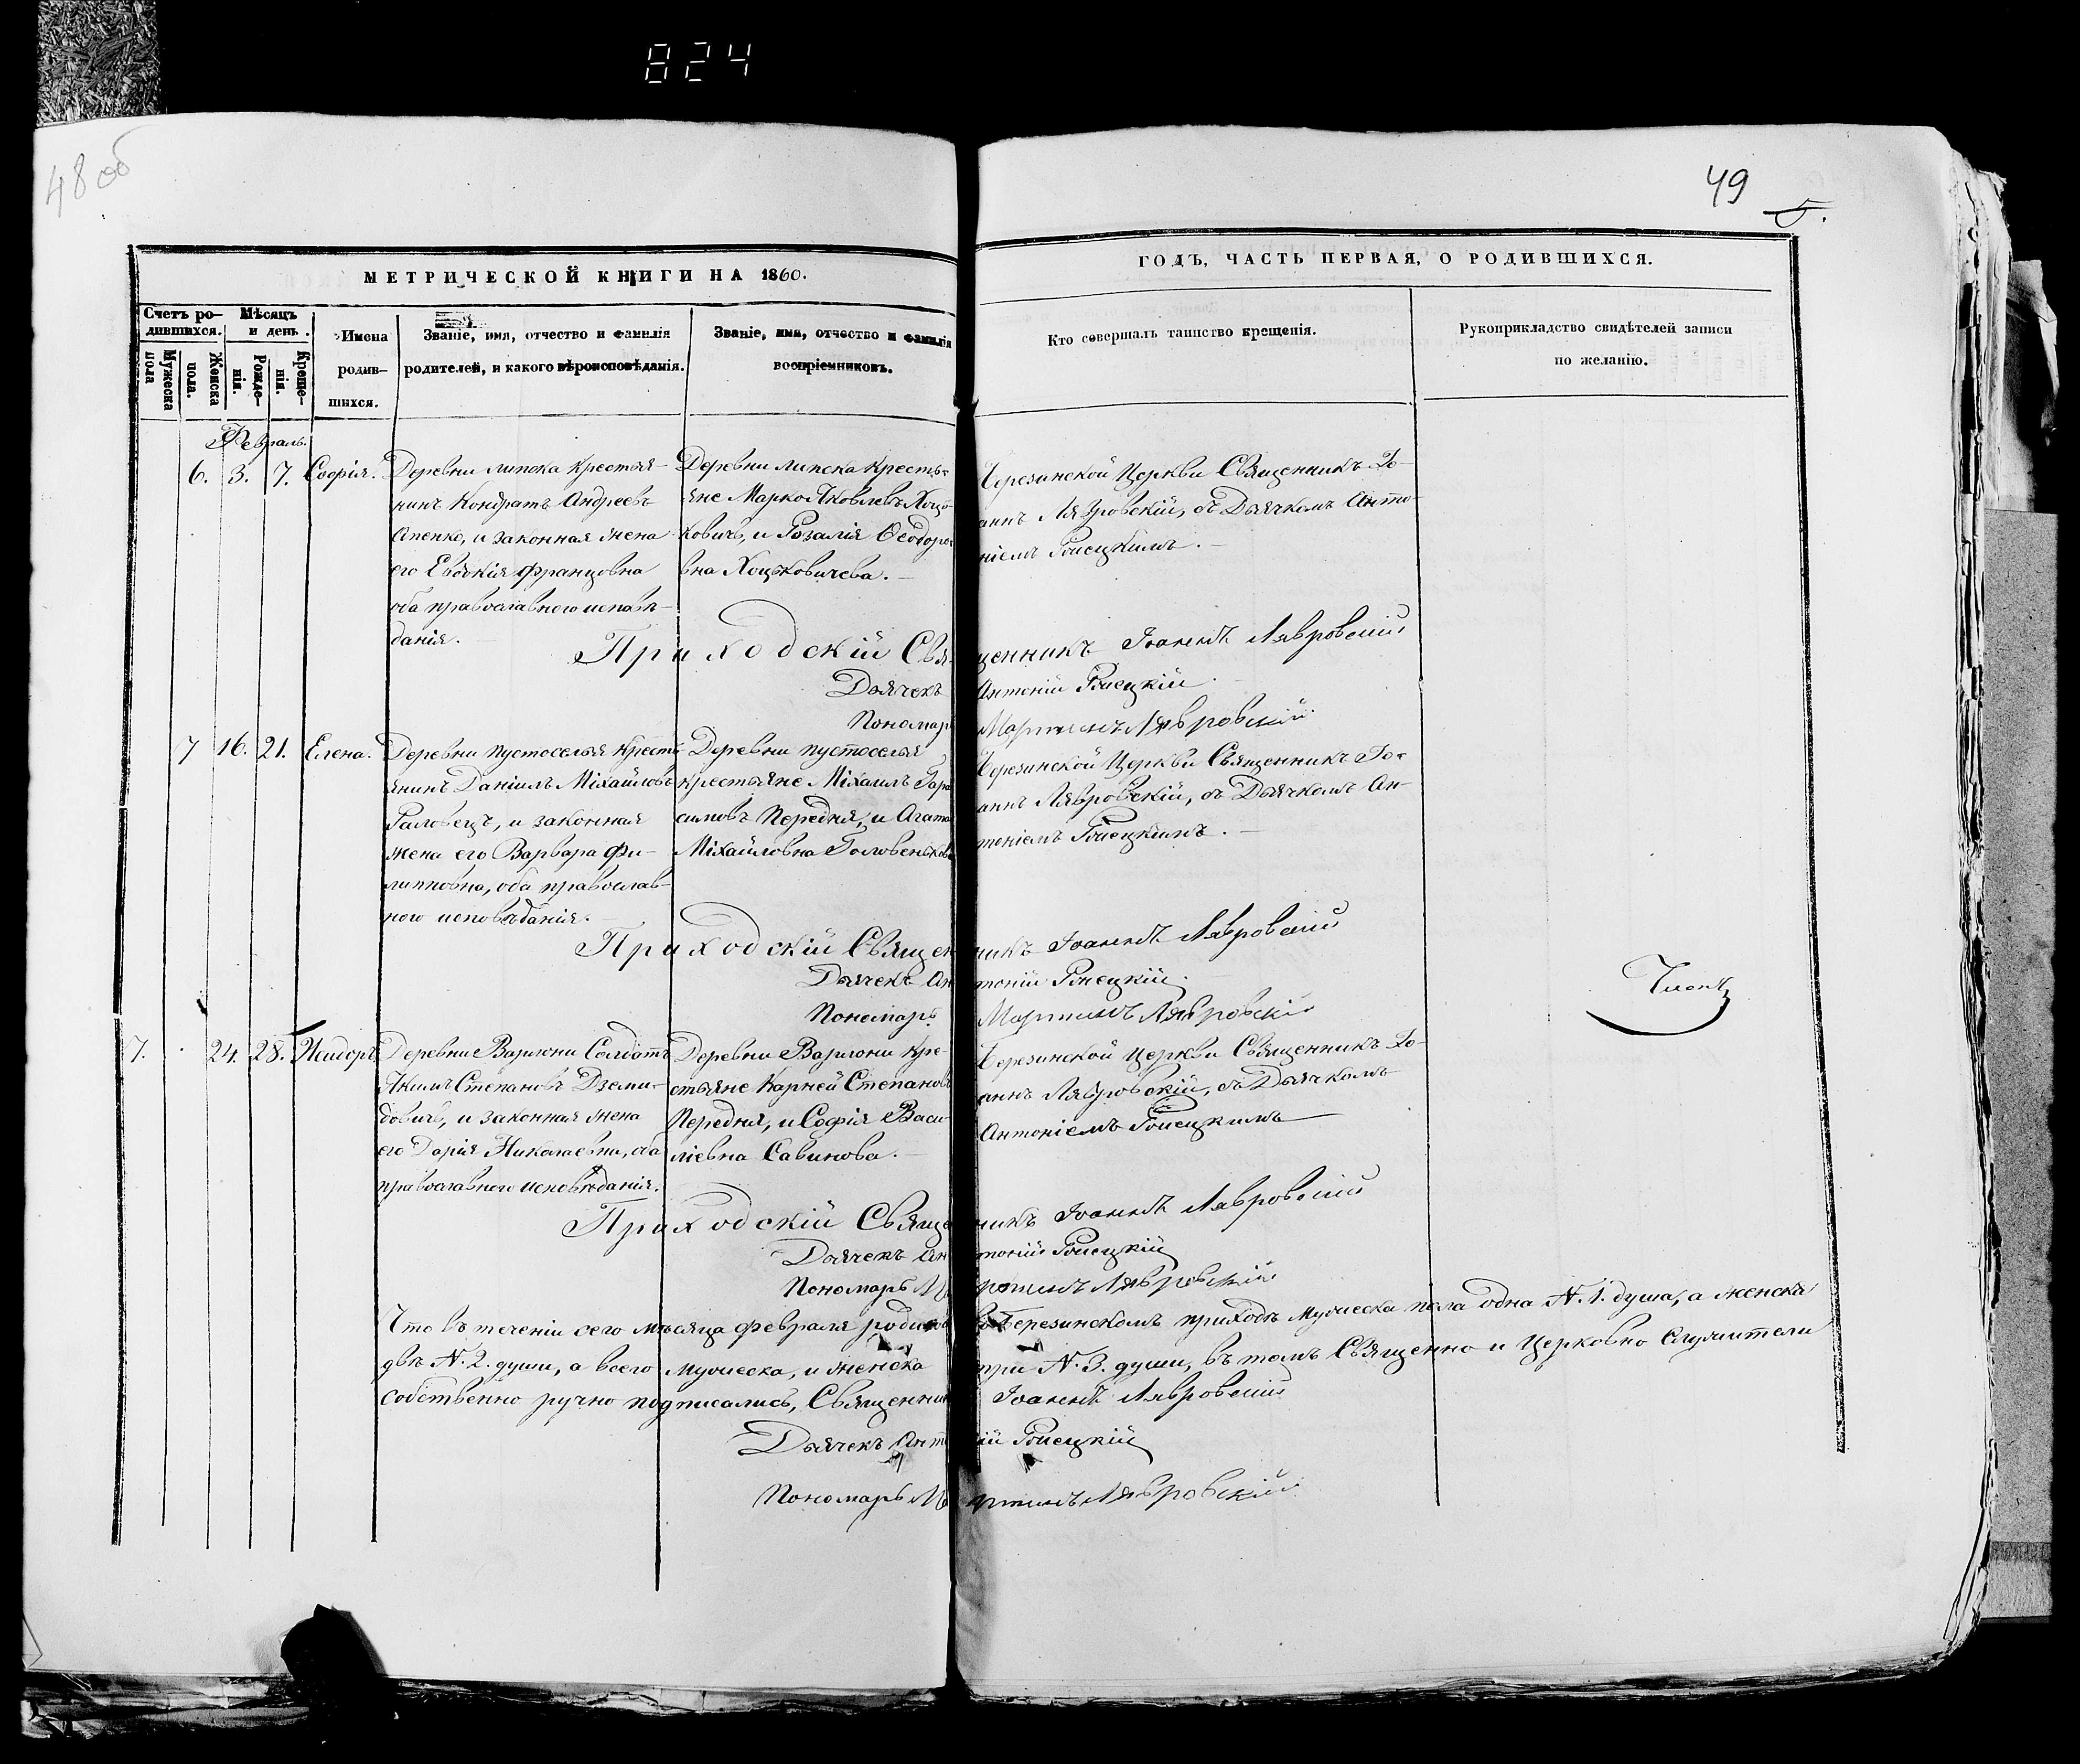 824
48 об
49
5.
МЕТРИЧЕСКОЙ КНИГИ НА 1860.
ГОДЪ, ЧАСТЬ ПЕРВАЯ, О РОДИВШИХСЯ.
Счетъ ро-
дившихся.
Мужеска пола
Женска пола.
Мѣсяцъ
и день.
Рожде-
нія.
Креще-
нія.
Имена
родив-
шихся.
Званіе, имя, отчество и фамилія
родителей, и какого вѣроисповѣданія.
Званіе, имя, отчество и фамилія
воспріемниковъ.
Кто совершалъ таинство крещенія.
Рукоприкладство свидѣтелей записи
по желанію.
Февраль.
6. 3. 7. Софія.
Деревни Липска Крестья-
нинъ Кондратъ Андреевъ
Апенко, и законная жена
его Евдокія Францовна
оба православного исповѣ-
данія.
Деревни Липска Кресть-
яне Марко Яковлевъ Хоць-
ковичъ, и Розалія Ѳеодоро-
вна Хоцьковичева.
Березинской Церкви Священникъ Іо-
аннъ Лявровскій, съ Дьячкомъ Анто-
ніемъ
Приходскій Священникъ Іоаннъ Лявровскій
Дьячекъ Антоній
Пономарь Мартинъ Лявровскій
7 16. 21. Елена.
Деревни Пустоселья Кресть-
янинъ Даніилъ Міхайловъ
и законная
жена его Варвара Фи-
липповна, оба православ-
ного исповѣданія.
Деревни Пустоселья
крестьяне Міхаилъ Гара-
симовъ Передня, и Агата
Міхайловна Головенькова
Березинской Церкви Священникъ Іо-
аннъ Лявровскій, съ Дьячкомъ Ан-
тоніемъ
Приходскій Священникъ Іоаннъ Лявровскій
Дьячекъ Антоній
Пономарь Мартинъ Лявровскій
7. 24. 28. Исидоръ
Деревни Солдатъ
Якимъ Степановъ Дземи-
довичъ, и законная жена
его Дарія Николаевна, оба
православного исповѣданія.
Деревни Кре-
стьяне Карней Степановъ
Передня, и Софія Васи-
ліевна Савинова.
Березинской Церкви Священникъ Іо-
аннъ Лявровскій, съ Дьячкомъ
Антоніемъ
Приходскій Священникъ Іоаннъ Лявровскій
Дьячекъ Антоній
Пономарь Мартинъ Лявровскій
Что въ теченіи сего мѣсяца февраля родилось въ Березинскомъ приходѣ мужеска пола одна N. 1. душа, а женска
двѣ N. 2. души, а всего мужеска, и женска три N. 3. души, въ томъ Священно и Церковно Служители
собственно ручно подписались, Священникъ Іоаннъ Лявровскій
Дьячекъ Антоній
Пономарь Мартинъ Лявровскій